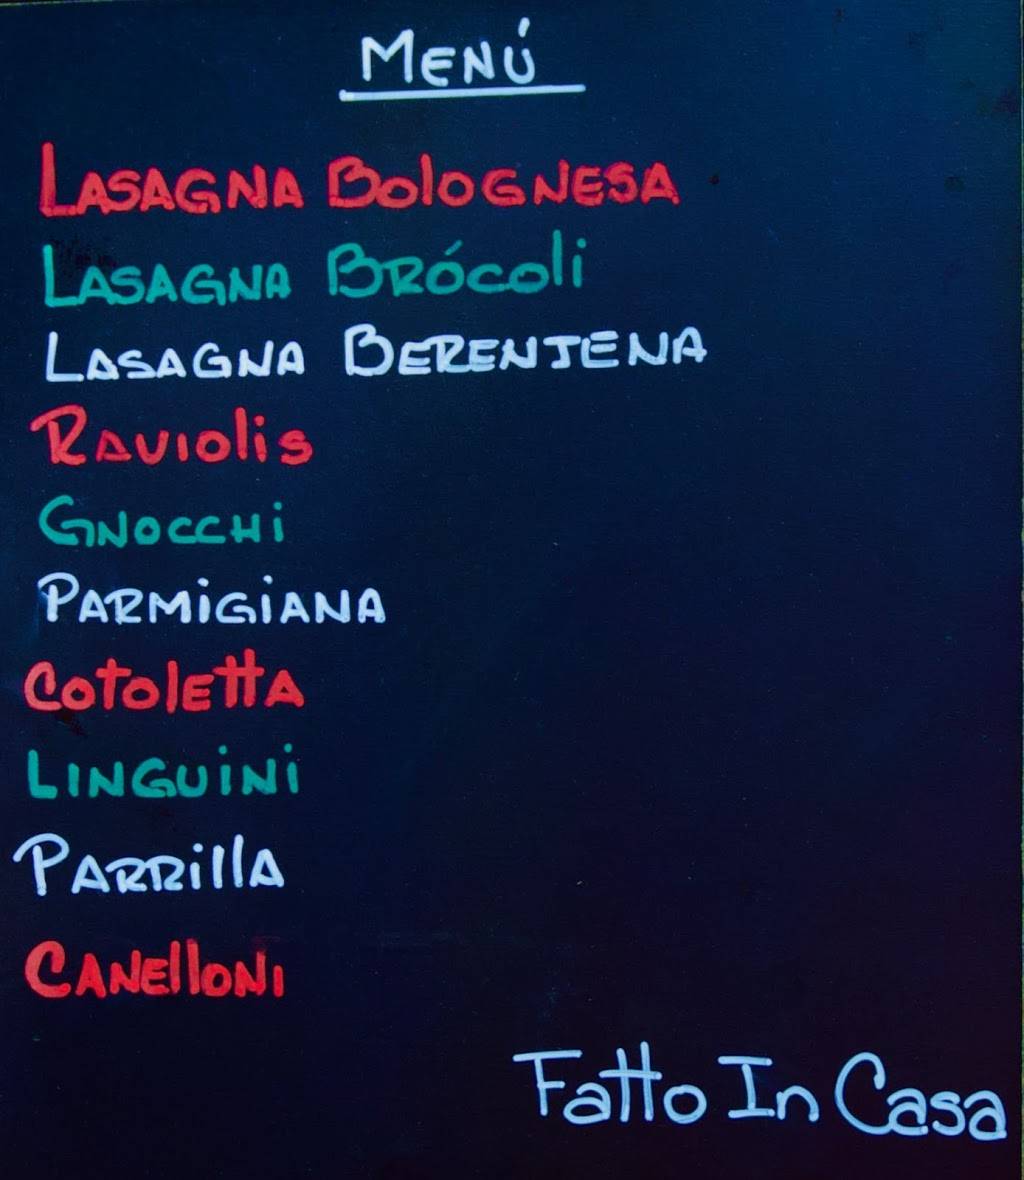 MENÚ
LASAGNA BOLOGNESA
LASAGNA BRÓCOLI
LASAGNA BERENJENA
RAVIOLIS
GNOCCHI
PARMIGIANA
COTOLETTA
LINGUINI
PARRILLA
CANELLONI
Fatto In Casa